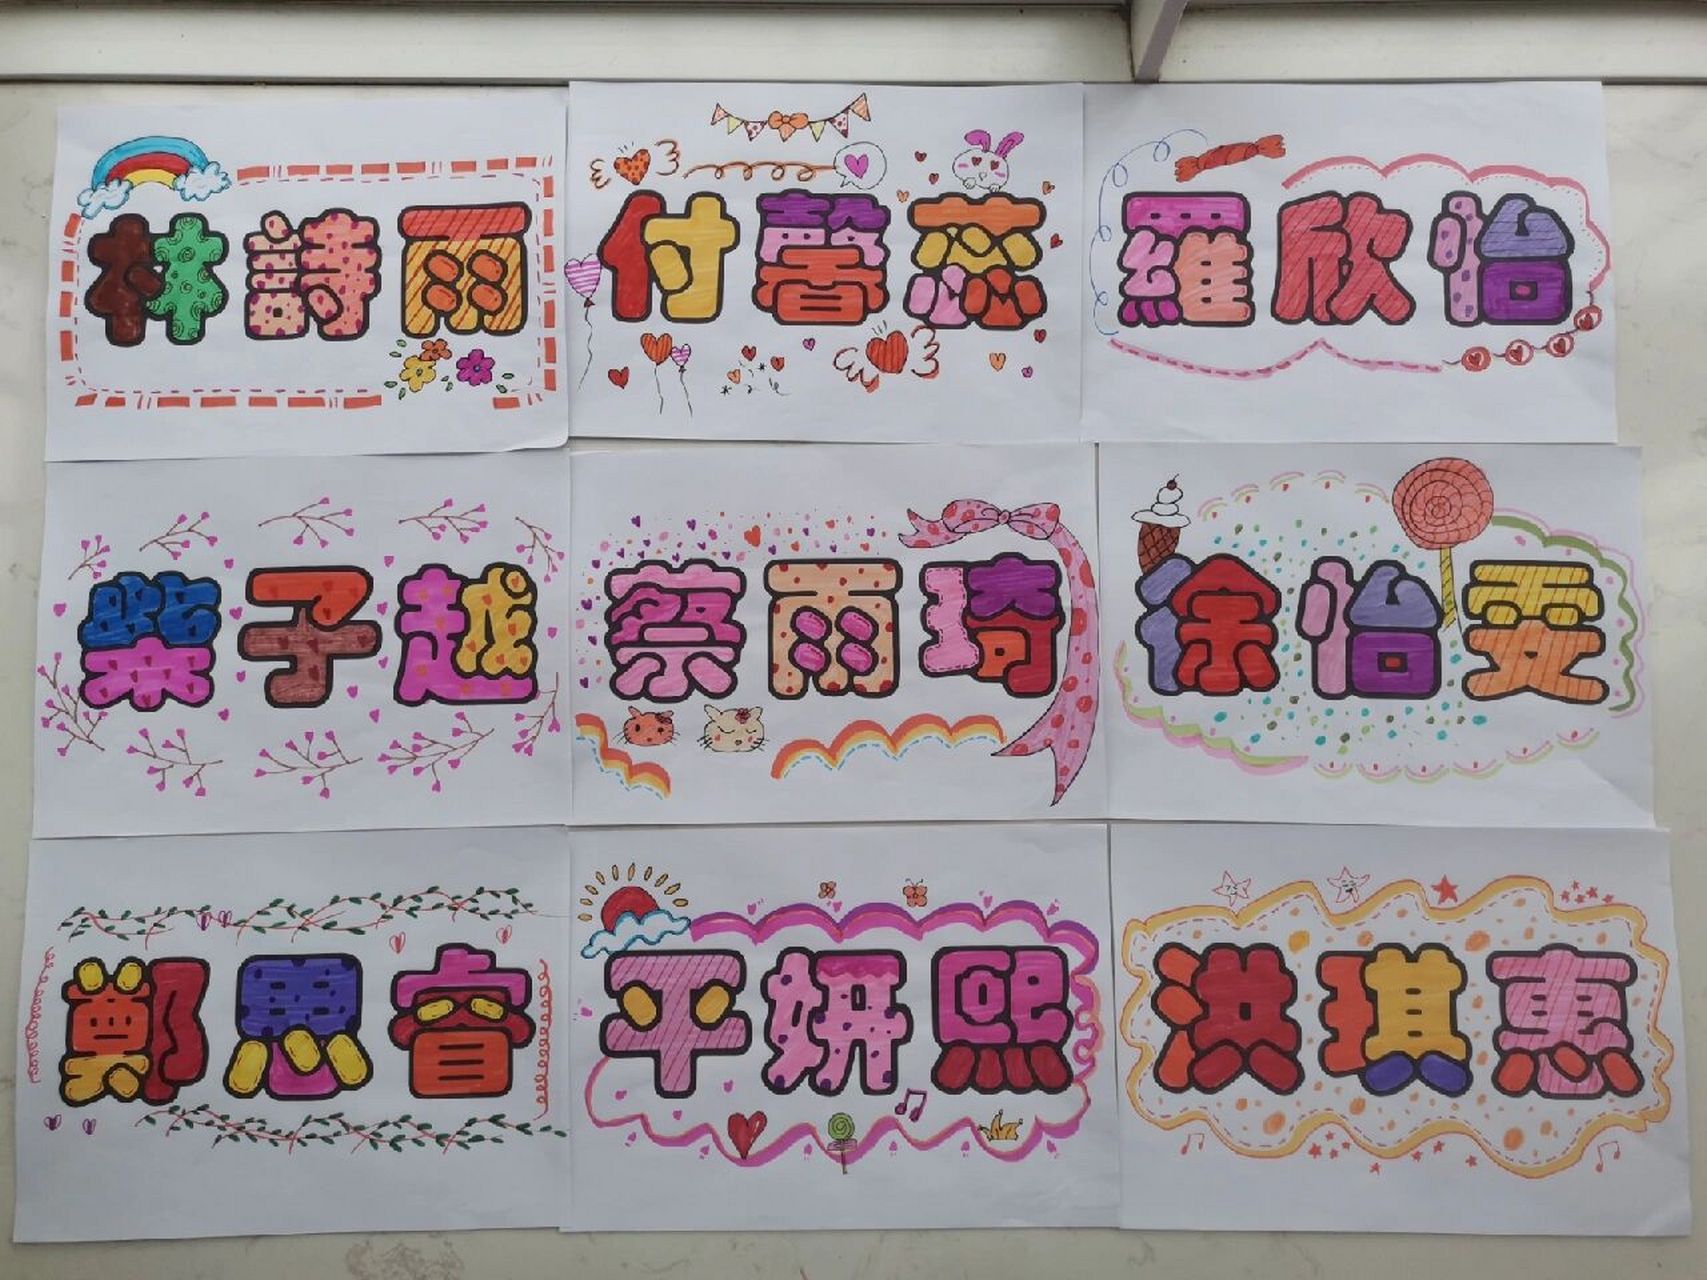 林詩雨
付馨蕊
羅欣怡
柴子越
蔡雨琦
徐怡雯
鄭思睿
平妍熙
洪琪惠